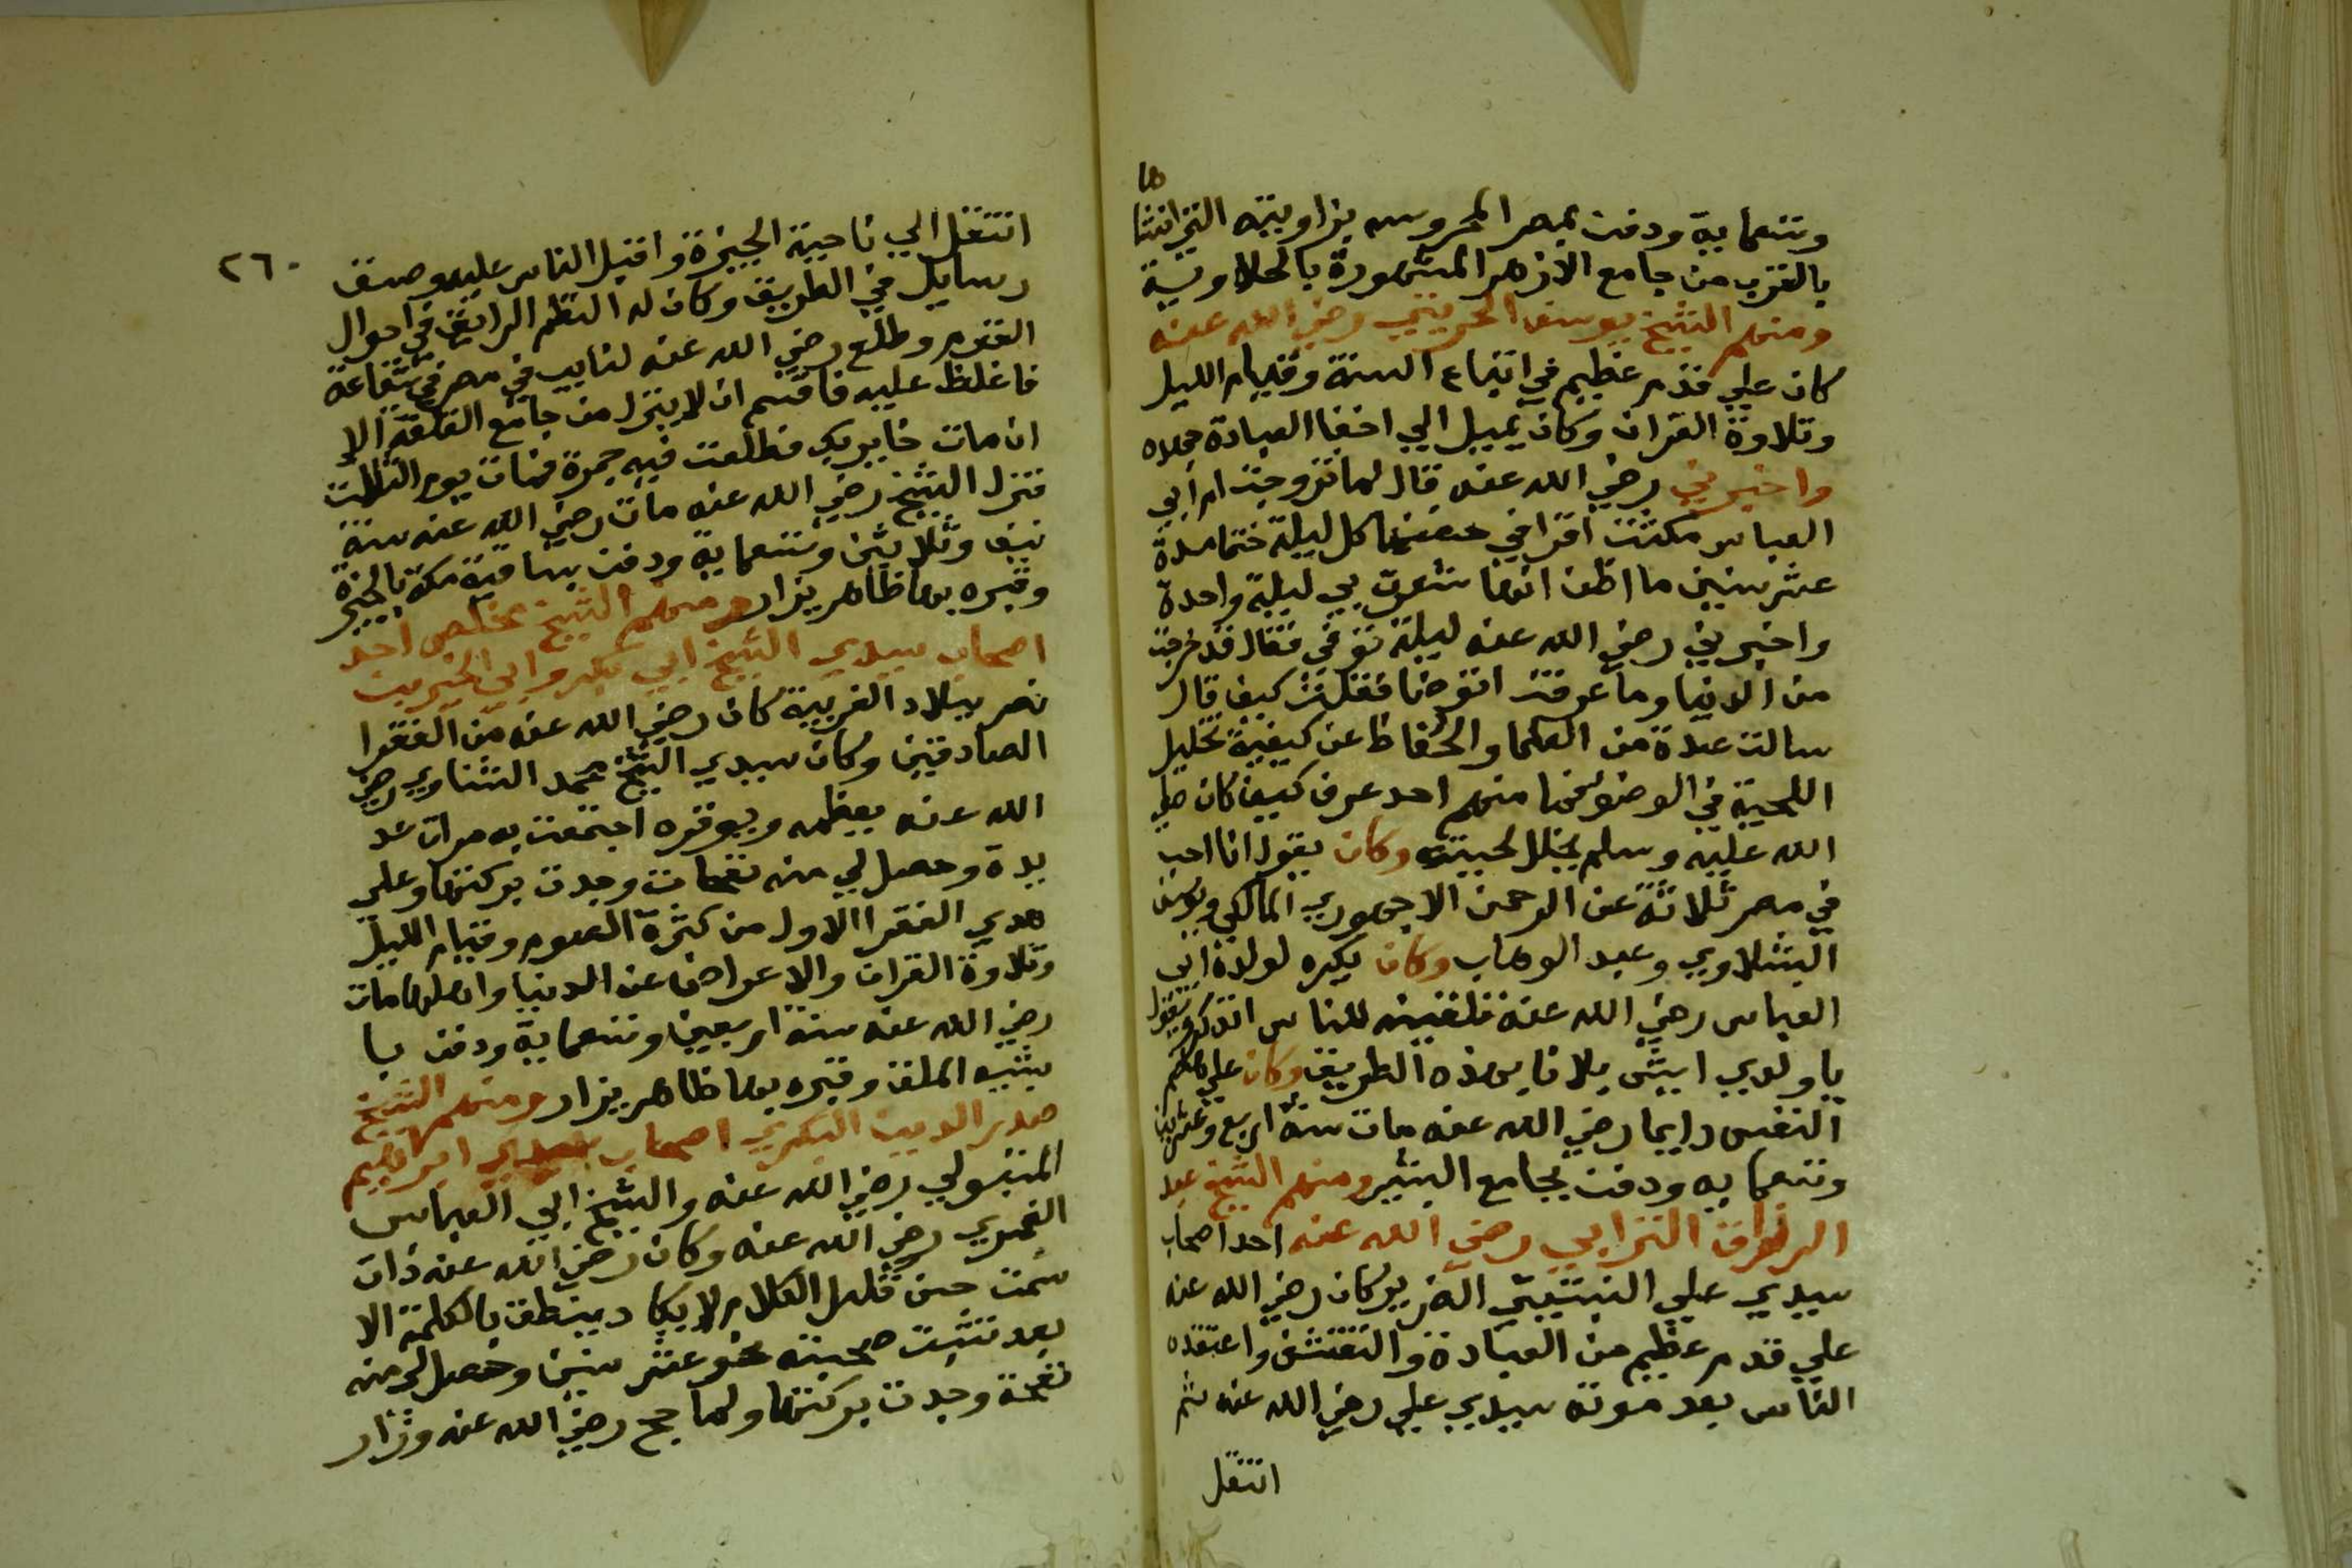 وتسعماية ودفن بمصر المحروسه بزاويته التي انشا
ها
بالقرب من جامع الازهر المشهورة بالحلاوسية
ومنهم الشيخ يوسف الحريثي رضي الله عنه
كان علي قدم عظيم في اتباع السنة وقيام الليل
وتلاوة القران وكان يميل الي اخفا العبادة جهده
واخبرني رضي الله عنه قال لما تزوجت ام ابي
العباس مكثت اقرا في حضنها كل ليلة ختما مدة
عشر سنين ما اظن انها شعرت بي ليلة واحدة
واخبرني رضي الله عنه ليلة توفي فقال قد خرجت
من الدنيا وما عرفت اتوضا فقلت كيف قال
سالت عدة من العلما والحفاظ عن كيفية تخليل
اللحية في الوضو فما منهم احد عرف كيف كان صلي
الله عليه وسلم يخلل لحيته وكان يقول انا احب
في مصر ثلاثة عبد الرحمن الاجهوري المالكي ويوسف
البشلاوي وعبد الوهاب وكان يكره لولده ابي
العباس رضي الله عنه تلقينه للناس الذكر ويقول
يا ولدي ايش بلانا بهذه الطريق وكان علي هضم
النفس دايما رضي الله عنه مات سنة اربع وعشرين
وتسعمايه ودفن بجامع البشير ومنهم الشيخ عبد
الرزاق الترابي رضي الله عنه احد اصحاب
سيدي علي النبتيتي الضرير كان رضي الله عنه
علي قدم عظيم من العبادة والتقشف واعتقده
الناس بعد موت سيدي علي رضي الله عنه ثم
انتقل
٢٦٠
انتقل الي ناحية الجيزة واقبل الناس عليه وصنف
رسايل في الطريق وكان له النظم الرايق في احوال
القوم وطلع رضي الله عنه لنايب في مصر في شفاعة
فاغلظ عليه فاقسم ان لا ينزل من جامع القلعة الا
ان مات خاير بك فطلعت فيه جمرة فمات يوم الثالث
فنزل الشيخ رضي الله عنه مات رضي الله عنه سنة
نيف وثلاثين وتسعماية ودفن بساقية مكة بالجيزة
وقبره بها ظاهر يزار ومنهم الشيخ مخلص احد
اصحاب سيدي الشيخ ابي بكر وابي الخير بن
نصر ببلاد الغربية كان رضي الله عنه من الفقرا
الصادقين وكان سيدي الشيخ محمد الشناوي رضي
الله عنه يعظمه ويوقره اجتمعت به مرات عد
يدة وحصل لي منه نفحات وجدت بركتها وعلي
هدي الفقرا الاول من كثرة الصوم وقيام الليل
وتلاوة القران والاعراض عن الدنيا واهلها مات
رضي الله عنه سنة اربعين وتسعماية ودفن با
بشيه الملق وقبره بها ظاهر يزار ومنهم الشيخ
صدر الدين البكري اصحاب سيدي ابراهيم
المتبولي رضي الله عنه والشيخ ابي العباس
الغمري رضي الله عنه وكان رضي الله عنه ذات
سمت حسن قليل الكلام لا يكاد ينطق بالكلمة الا
بعد تثبت صحبته نحو عشر سنين وحصل لي منه
نفحة وجدت بركتها ولما حج رضي الله عنه وزار